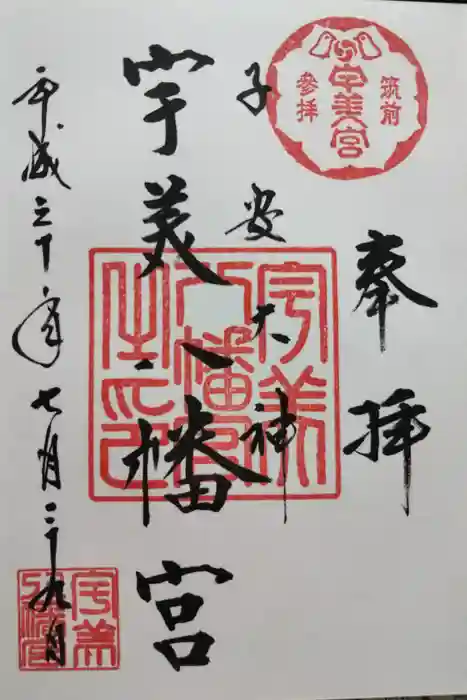 筑前
宇美宮
參拝
奉拝
子安大神
宇美八幡宮
平成三十年七月二十九日
宇美
八幡宮
之印
宇美
八幡宮